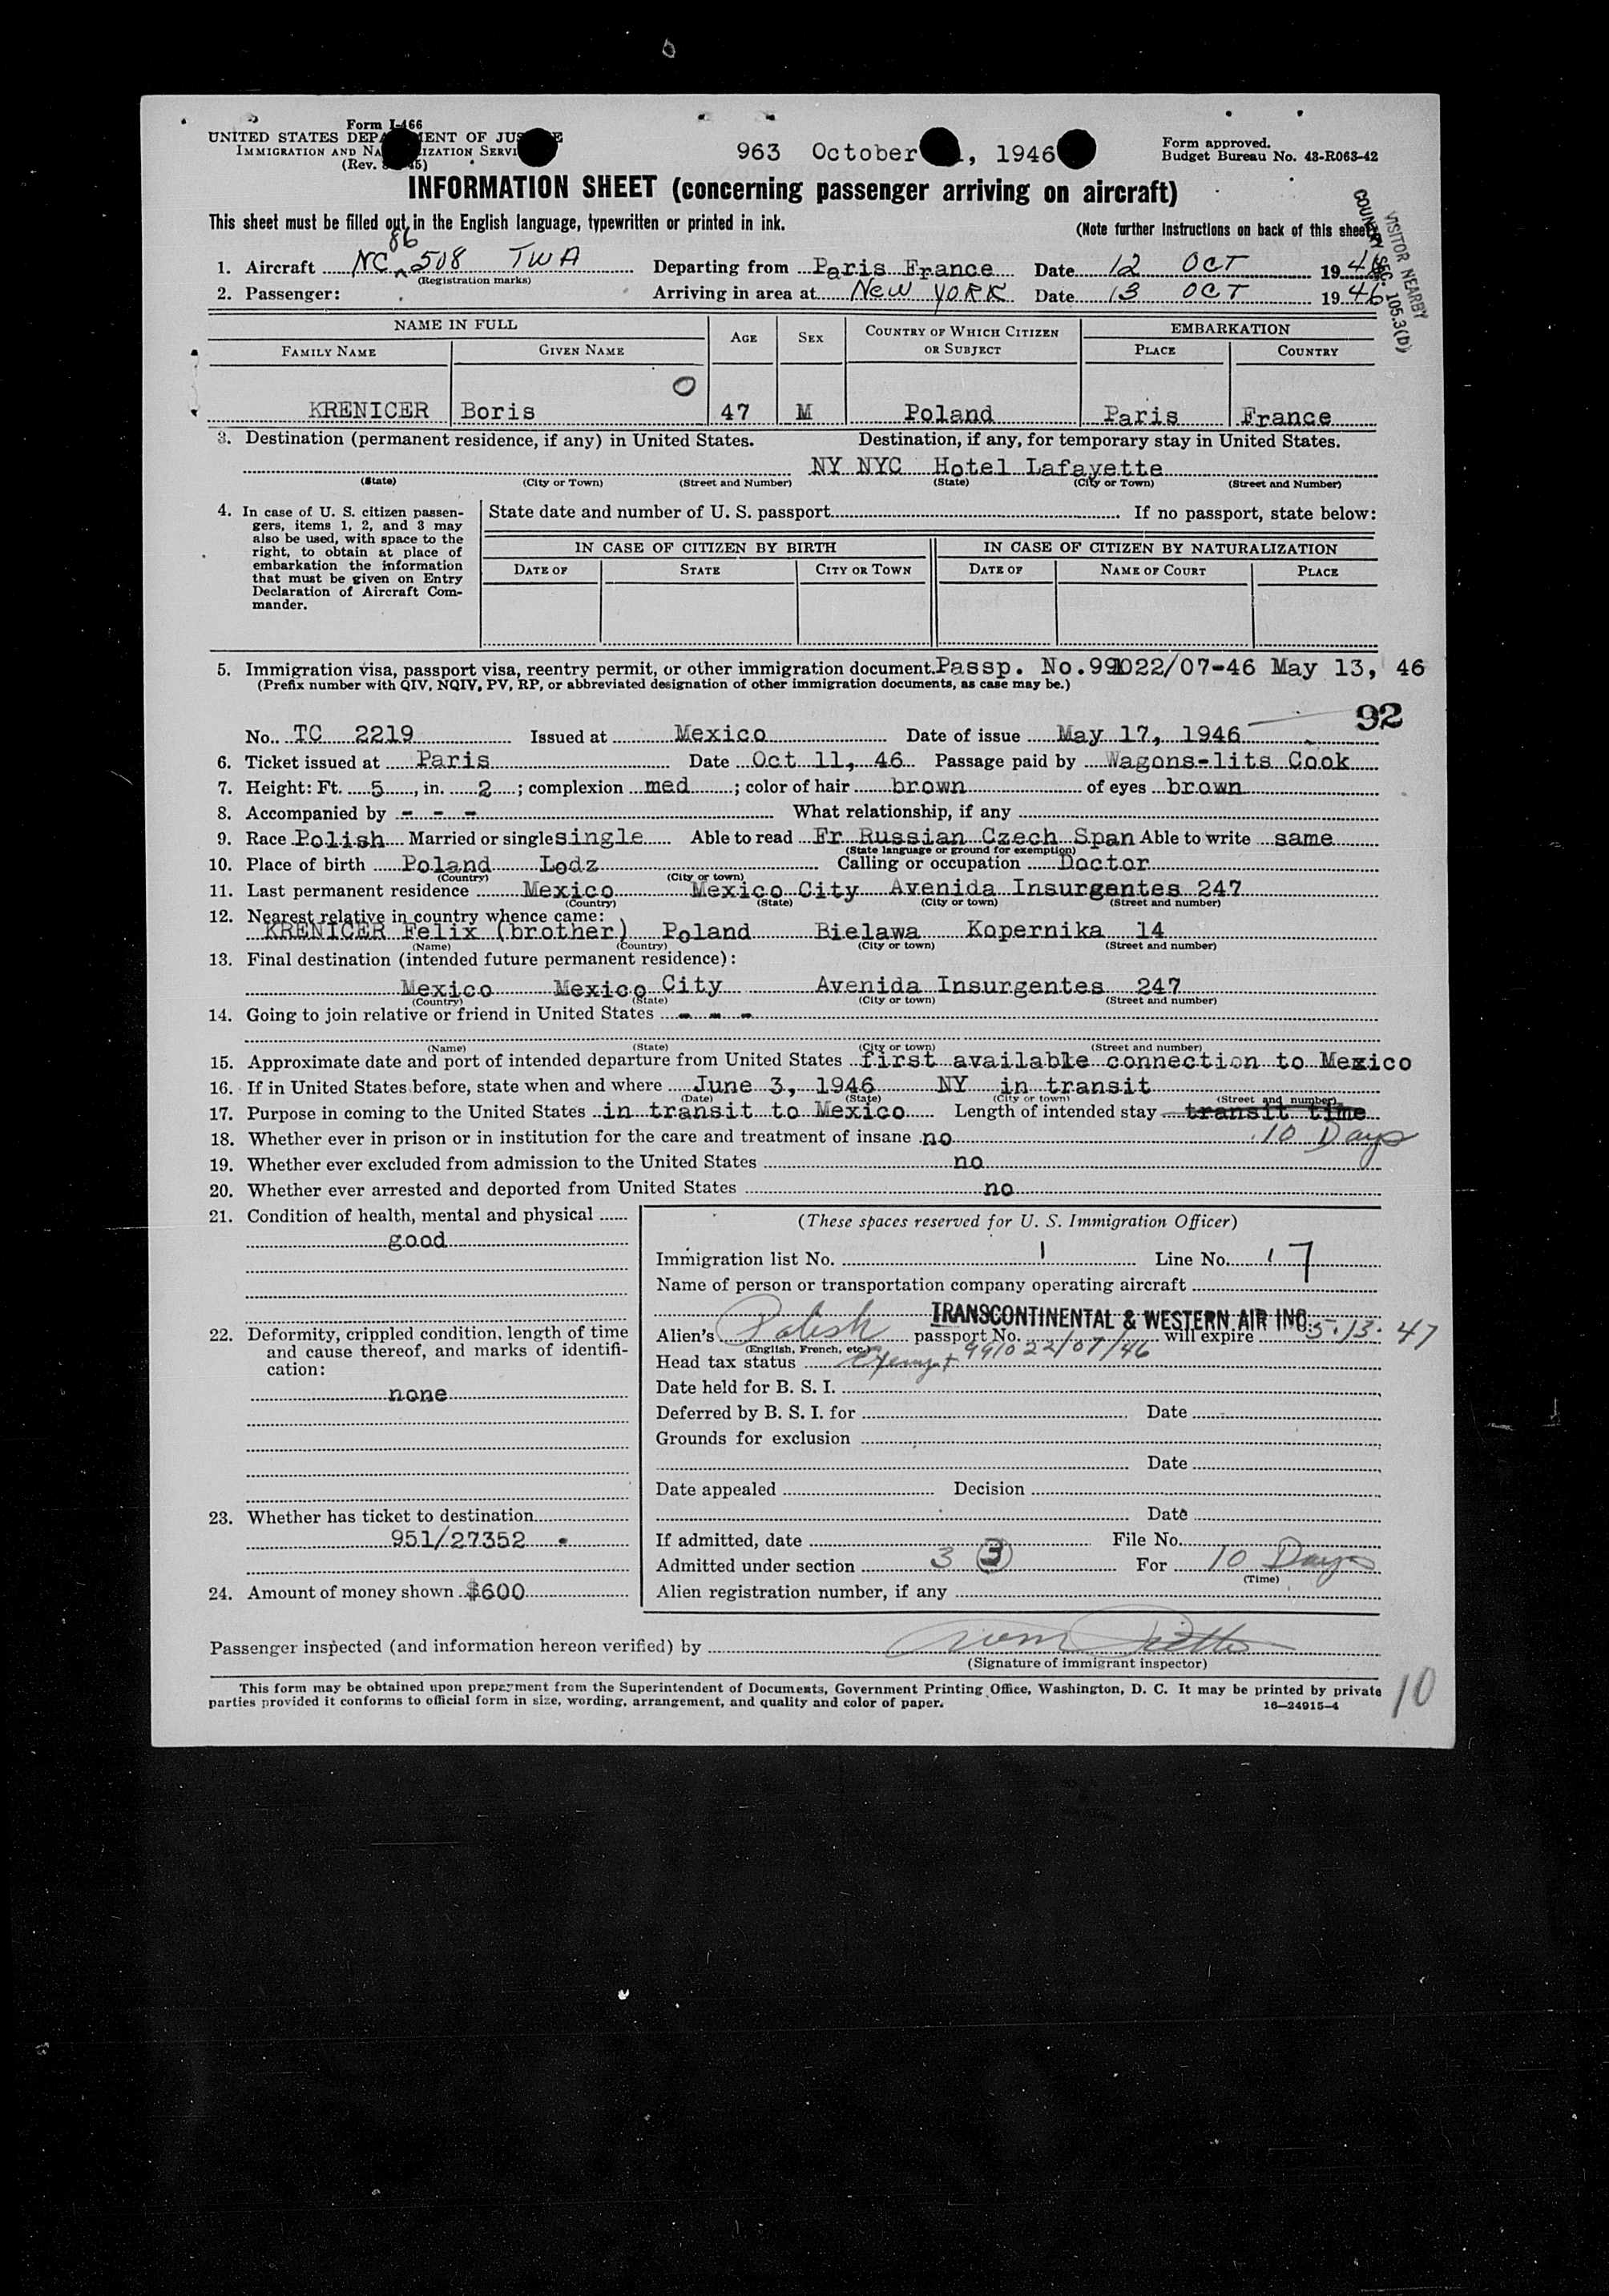 Form I-466
UNITED STATES DEPA MENT OF JUS E
IMMIGRATION AND NA IZATION SERVI
(Rev. 45)
963 October , 1946
Form approved.
Budget Bureau No. 43-R063-42
INFORMATION SHEET (concerning passenger arriving on aircraft)
This sheet must be filled out in the English language, typewritten or printed in ink.
(Note further instructions on back of this sheet)
VISITOR NEARBY
COUNTRY SEC. 105.3(b)
86
1. Aircraft NC 508 TWA Departing from Paris France Date 12 OCT 1946
(Registration marks)
2. Passenger: Arriving in area at New YORK Date 13 OCT 1946
NAME IN FULL AGE SEX COUNTRY OF WHICH CITIZEN OR SUBJECT EMBARKATION
FAMILY NAME GIVEN NAME PLACE COUNTRY
O
KRENICER Boris 47 M Poland Paris France
3. Destination (permanent residence, if any) in United States. Destination, if any, for temporary stay in United States.
NY NYC Hotel Lafayette
(State) (City or Town) (Street and Number) (State) (City or Town) (Street and Number)
4. In case of U. S. citizen passen-
gers, items 1, 2, and 3 may
also be used, with space to the
right, to obtain at place of
embarkation the information
that must be given on Entry
Declaration of Aircraft Com-
mander.
State date and number of U. S. passport If no passport, state below:
IN CASE OF CITIZEN BY BIRTH IN CASE OF CITIZEN BY NATURALIZATION
DATE OF STATE CITY OR TOWN DATE OF NAME OF COURT PLACE
5. Immigration visa, passport visa, reentry permit, or other immigration document. Passp. No. 991022/07-46 May 13, 46
(Prefix number with QIV, NQIV, PV, RP, or abbreviated designation of other immigration documents, as case may be.)
92
No. TC 2219 Issued at Mexico Date of issue May 17, 1946
6. Ticket issued at Paris Date Oct 11, 46 Passage paid by Wagons-lits Cook
7. Height: Ft. 5, in. 2; complexion med; color of hair brown of eyes brown
8. Accompanied by - - - What relationship, if any
9. Race Polish Married or single single Able to read Fr Russian Czech Span Able to write same
(State language or ground for exemption)
10. Place of birth Poland Lodz Calling or occupation Doctor
(Country) (City or town)
11. Last permanent residence Mexico Mexico City Avenida Insurgentes 247
(Country) (State) (City or town) (Street and number)
12. Nearest relative in country whence came:
KRENICER Felix (brother) Poland Bielawa Kopernika 14
(Name) (Country) (City or town) (Street and number)
13. Final destination (intended future permanent residence):
Mexico Mexico City Avenida Insurgentes 247
(Country) (State) (City or town) (Street and number)
14. Going to join relative or friend in United States - - -
(Name) (State) (City or town) (Street and number)
15. Approximate date and port of intended departure from United States first available connection to Mexico
16. If in United States before, state when and where June 3, 1946 NY in transit
(Date) (State) (City or town) (Street and number)
17. Purpose in coming to the United States in transit to Mexico Length of intended stay transit time
18. Whether ever in prison or in institution for the care and treatment of insane no 10 Days
19. Whether ever excluded from admission to the United States no
20. Whether ever arrested and deported from United States no
21. Condition of health, mental and physical
good
22. Deformity, crippled condition, length of time
and cause thereof, and marks of identifi-
cation:
none
23. Whether has ticket to destination
951/27352
24. Amount of money shown $600
(These spaces reserved for U. S. Immigration Officer)
Immigration list No. 1 Line No. 17
Name of person or transportation company operating aircraft
TRANSCONTINENTAL & WESTERN AIR INC.
Alien's Polish passport No. 991022/07/46 will expire 5.13.47
(English, French, etc.)
Head tax status Exempt
Date held for B. S. I.
Deferred by B. S. I. for Date
Grounds for exclusion
Date
Date appealed Decision
Date
If admitted, date File No.
Admitted under section 3 3 For 10 Days
(Time)
Alien registration number, if any
Passenger inspected (and information hereon verified) by
(Signature of immigrant inspector)
This form may be obtained upon prepayment from the Superintendent of Documents, Government Printing Office, Washington, D. C. It may be printed by private
parties provided it conforms to official form in size, wording, arrangement, and quality and color of paper. 16—24915-4
10